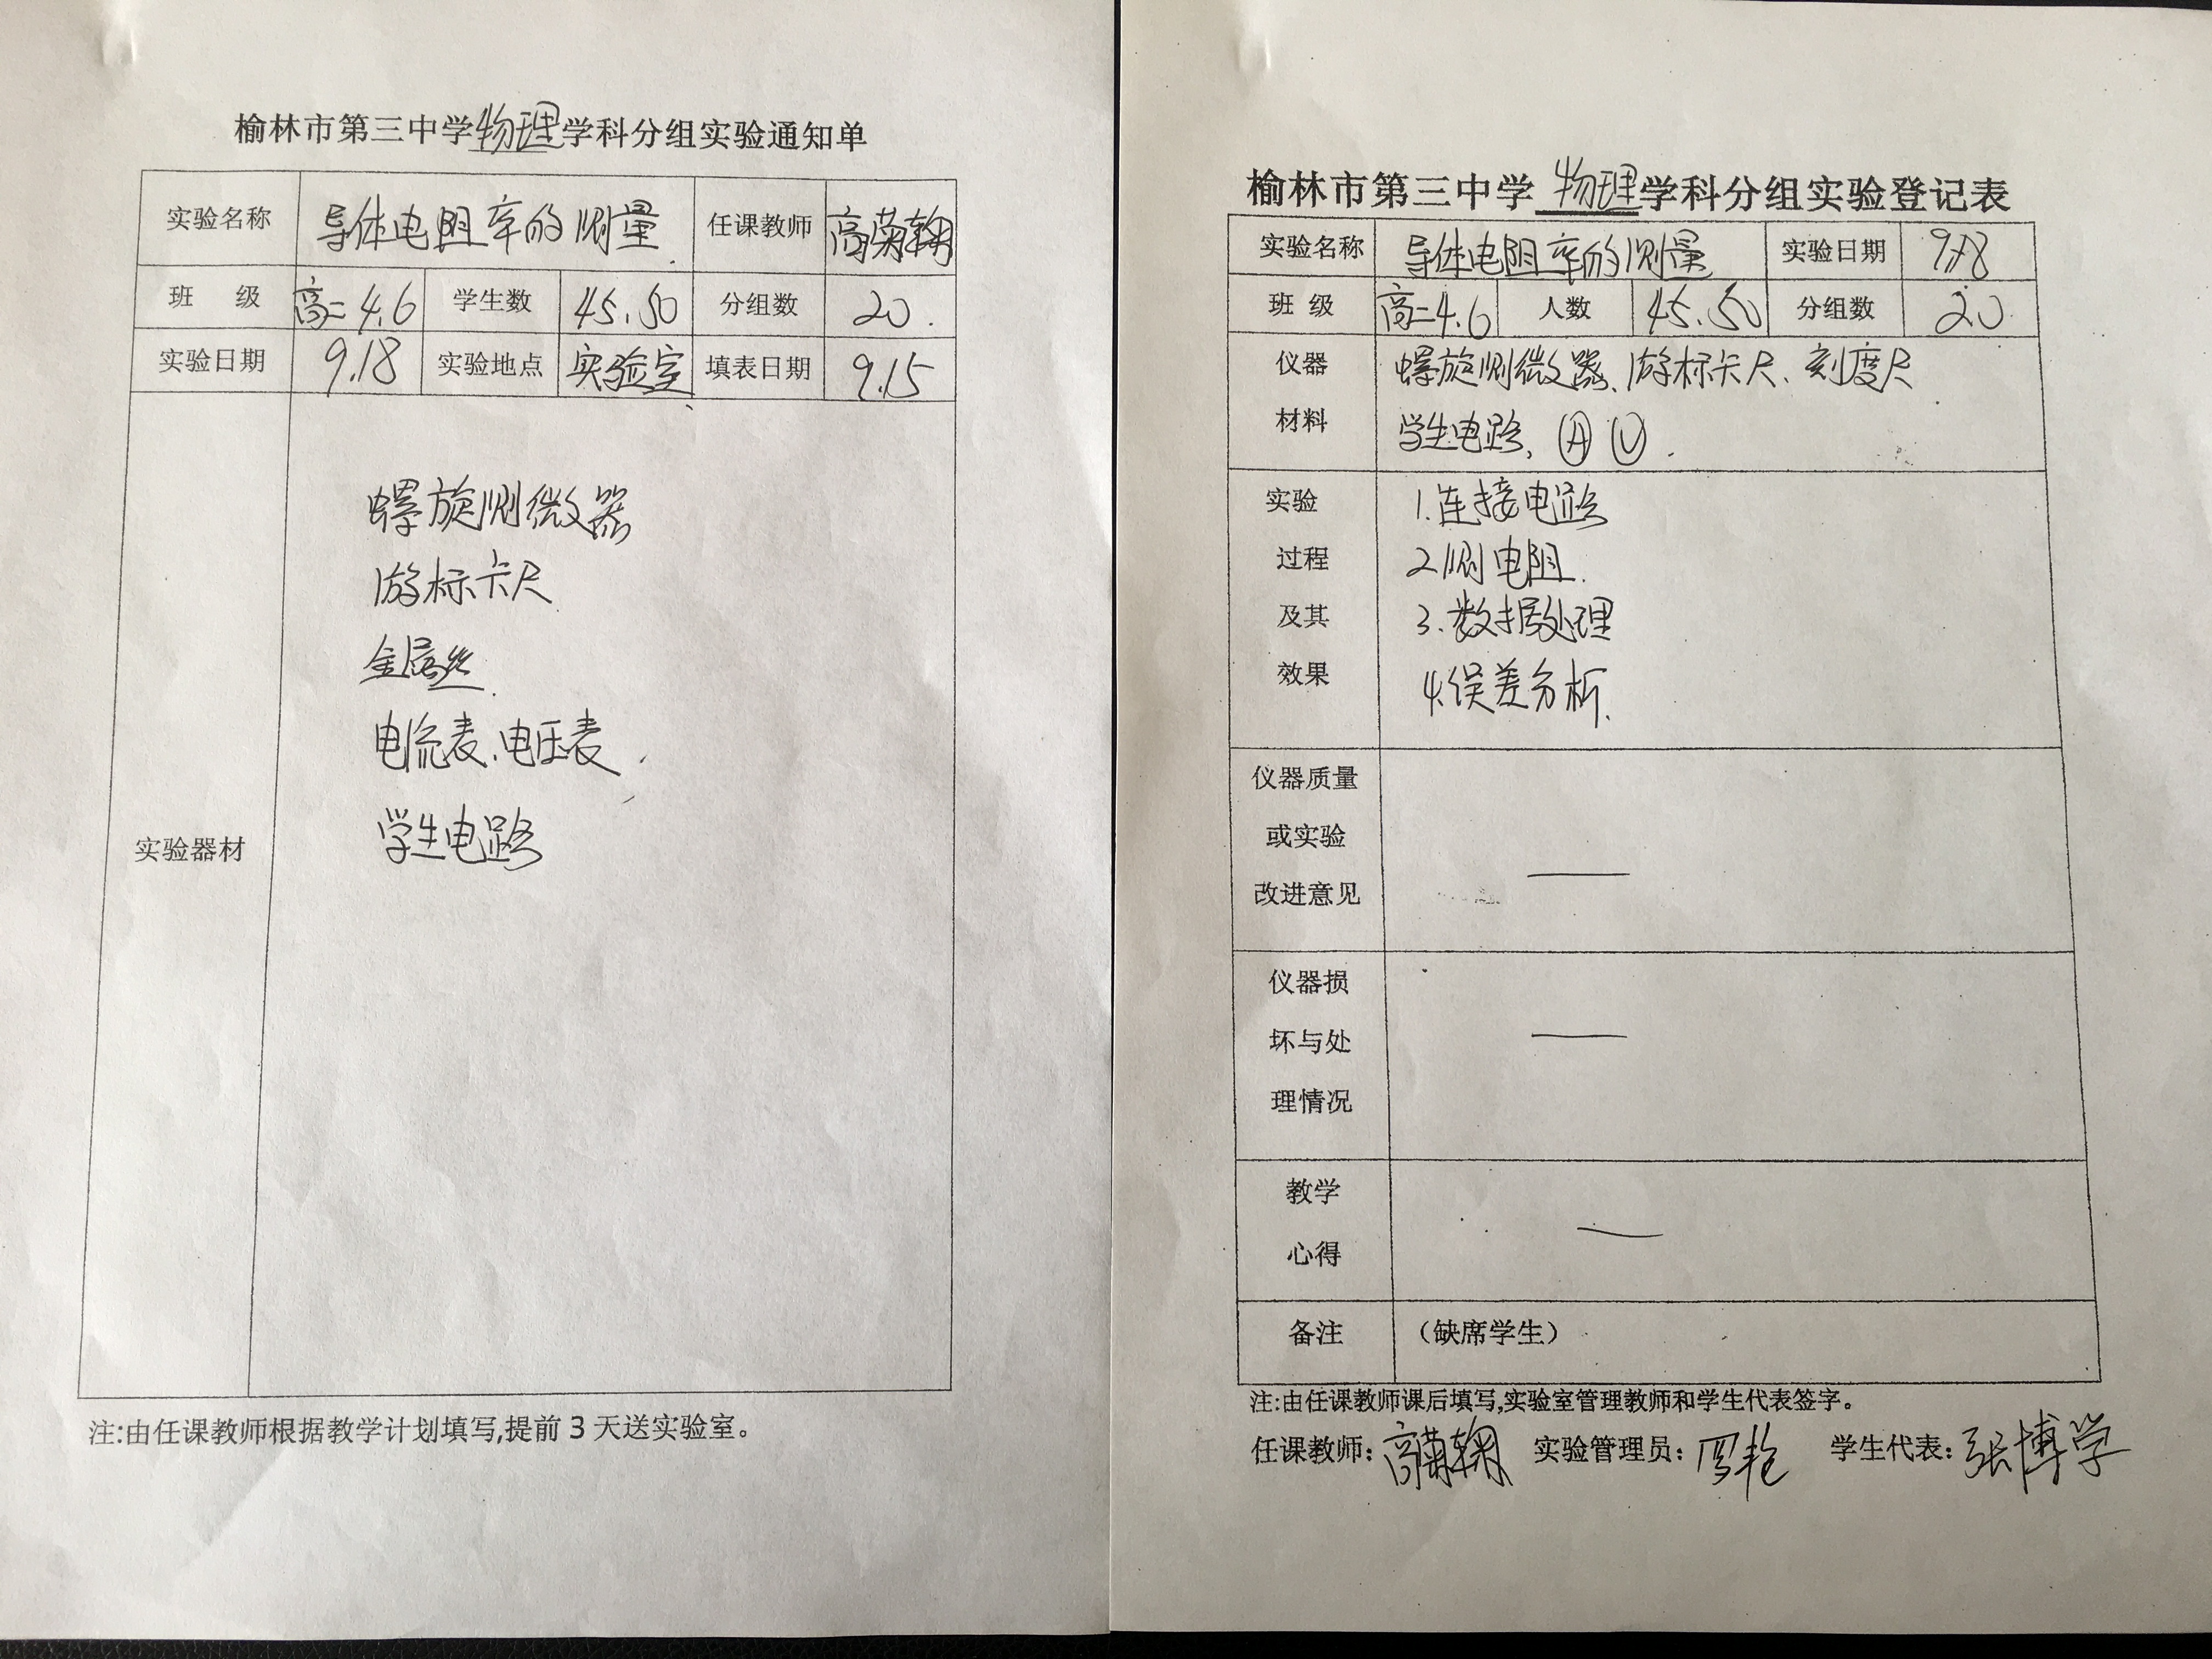 榆林市第三中学物理学科分组实验通知单
实验名称 导体电阻率的测量 任课教师 高菊翱
班 级 高二4.6 学生数 45.50 分组数 20.
实验日期 9.18 实验地点 实验室 填表日期 9.15
实验器材
螺旋测微器
游标卡尺
金属丝
电流表、电压表
学生电路
注:由任课教师根据教学计划填写,提前3天送实验室。
榆林市第三中学物理学科分组实验登记表
实验名称 导体电阻率的测量 实验日期 9.18
班 级 高二4.6 人数 45.50 分组数 20
仪器 螺旋测微器、游标卡尺、刻度尺
材料 学生电路、Ⓐ Ⓥ.
实验 1.连接电路
过程 2.测电阻.
及其 3.数据处理
效果 4.误差分析.
仪器质量
或实验 —
改进意见
仪器损
坏与处 —
理情况
教学 —
心得
备注 (缺席学生)
注:由任课教师课后填写,实验室管理教师和学生代表签字。
任课教师: 实验管理员: 学生代表:张博学